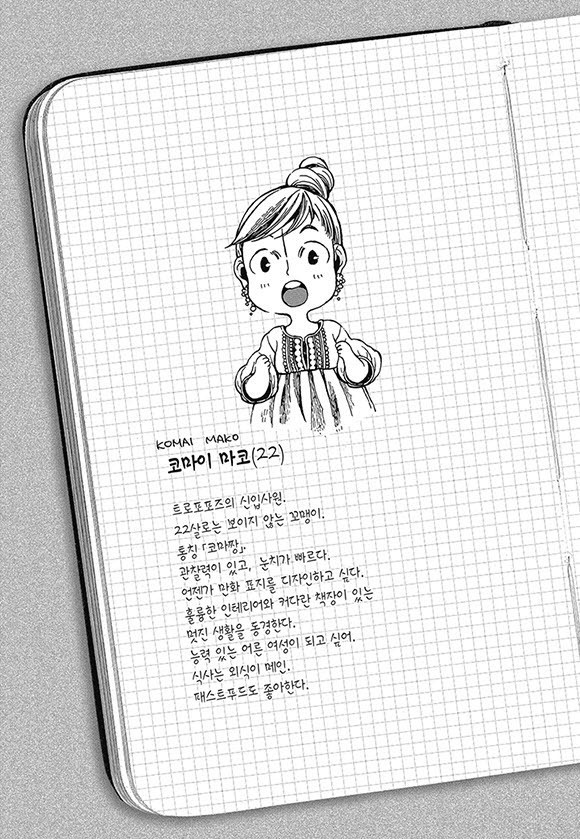 KOMAI MAKO
코마이 마코(22)
트로포포즈의 신입사원.
22살로는 보이지 않는 꼬맹이.
통칭 「코마짱」.
관찰력이 있고, 눈치가 빠르다.
언젠가 만화 표지를 디자인하고 싶다.
훌륭한 인테리어와 커다란 책장이 있는
멋진 생활을 동경한다.
능력 있는 어른 여성이 되고 싶어.
식사는 외식이 메인.
패스트푸드도 좋아한다.